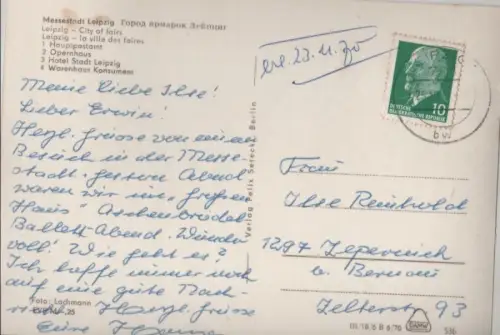 Messestadt Leipzig Город ярмарок Лейпциг
Leipzig – City of fairs
Leipzig – la ville des foires
1 Hauptpostamt
2 Opernhaus
3 Hotel Stadt Leipzig
4 Warenhaus Konsument
Meine liebe Ilse!
Lieber Erwin!
Herzl. Grüsse von einem
Besuch in der Messe-
stadt. Gestern Abend
waren wir im "Großen
Haus" Aschenbrödel
Ballett-Abend. Wunder
voll! Wie geht es?
Ich hoffe immer noch
auf eine gute Nach-
Herzl. Grüsse
Eure
Foto: Lachmann
Verlag Felix Setecki, Berlin
erl. 23.11.70
DEUTSCHE
DEMOKRATISCHE REPUBLIK
10
Frau
Ilse Reinhold
1297 Zepernick
b. Bernau
Zelterstr. 93